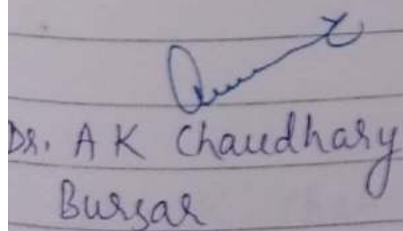 Dr. A K Chaudhary
Bursar